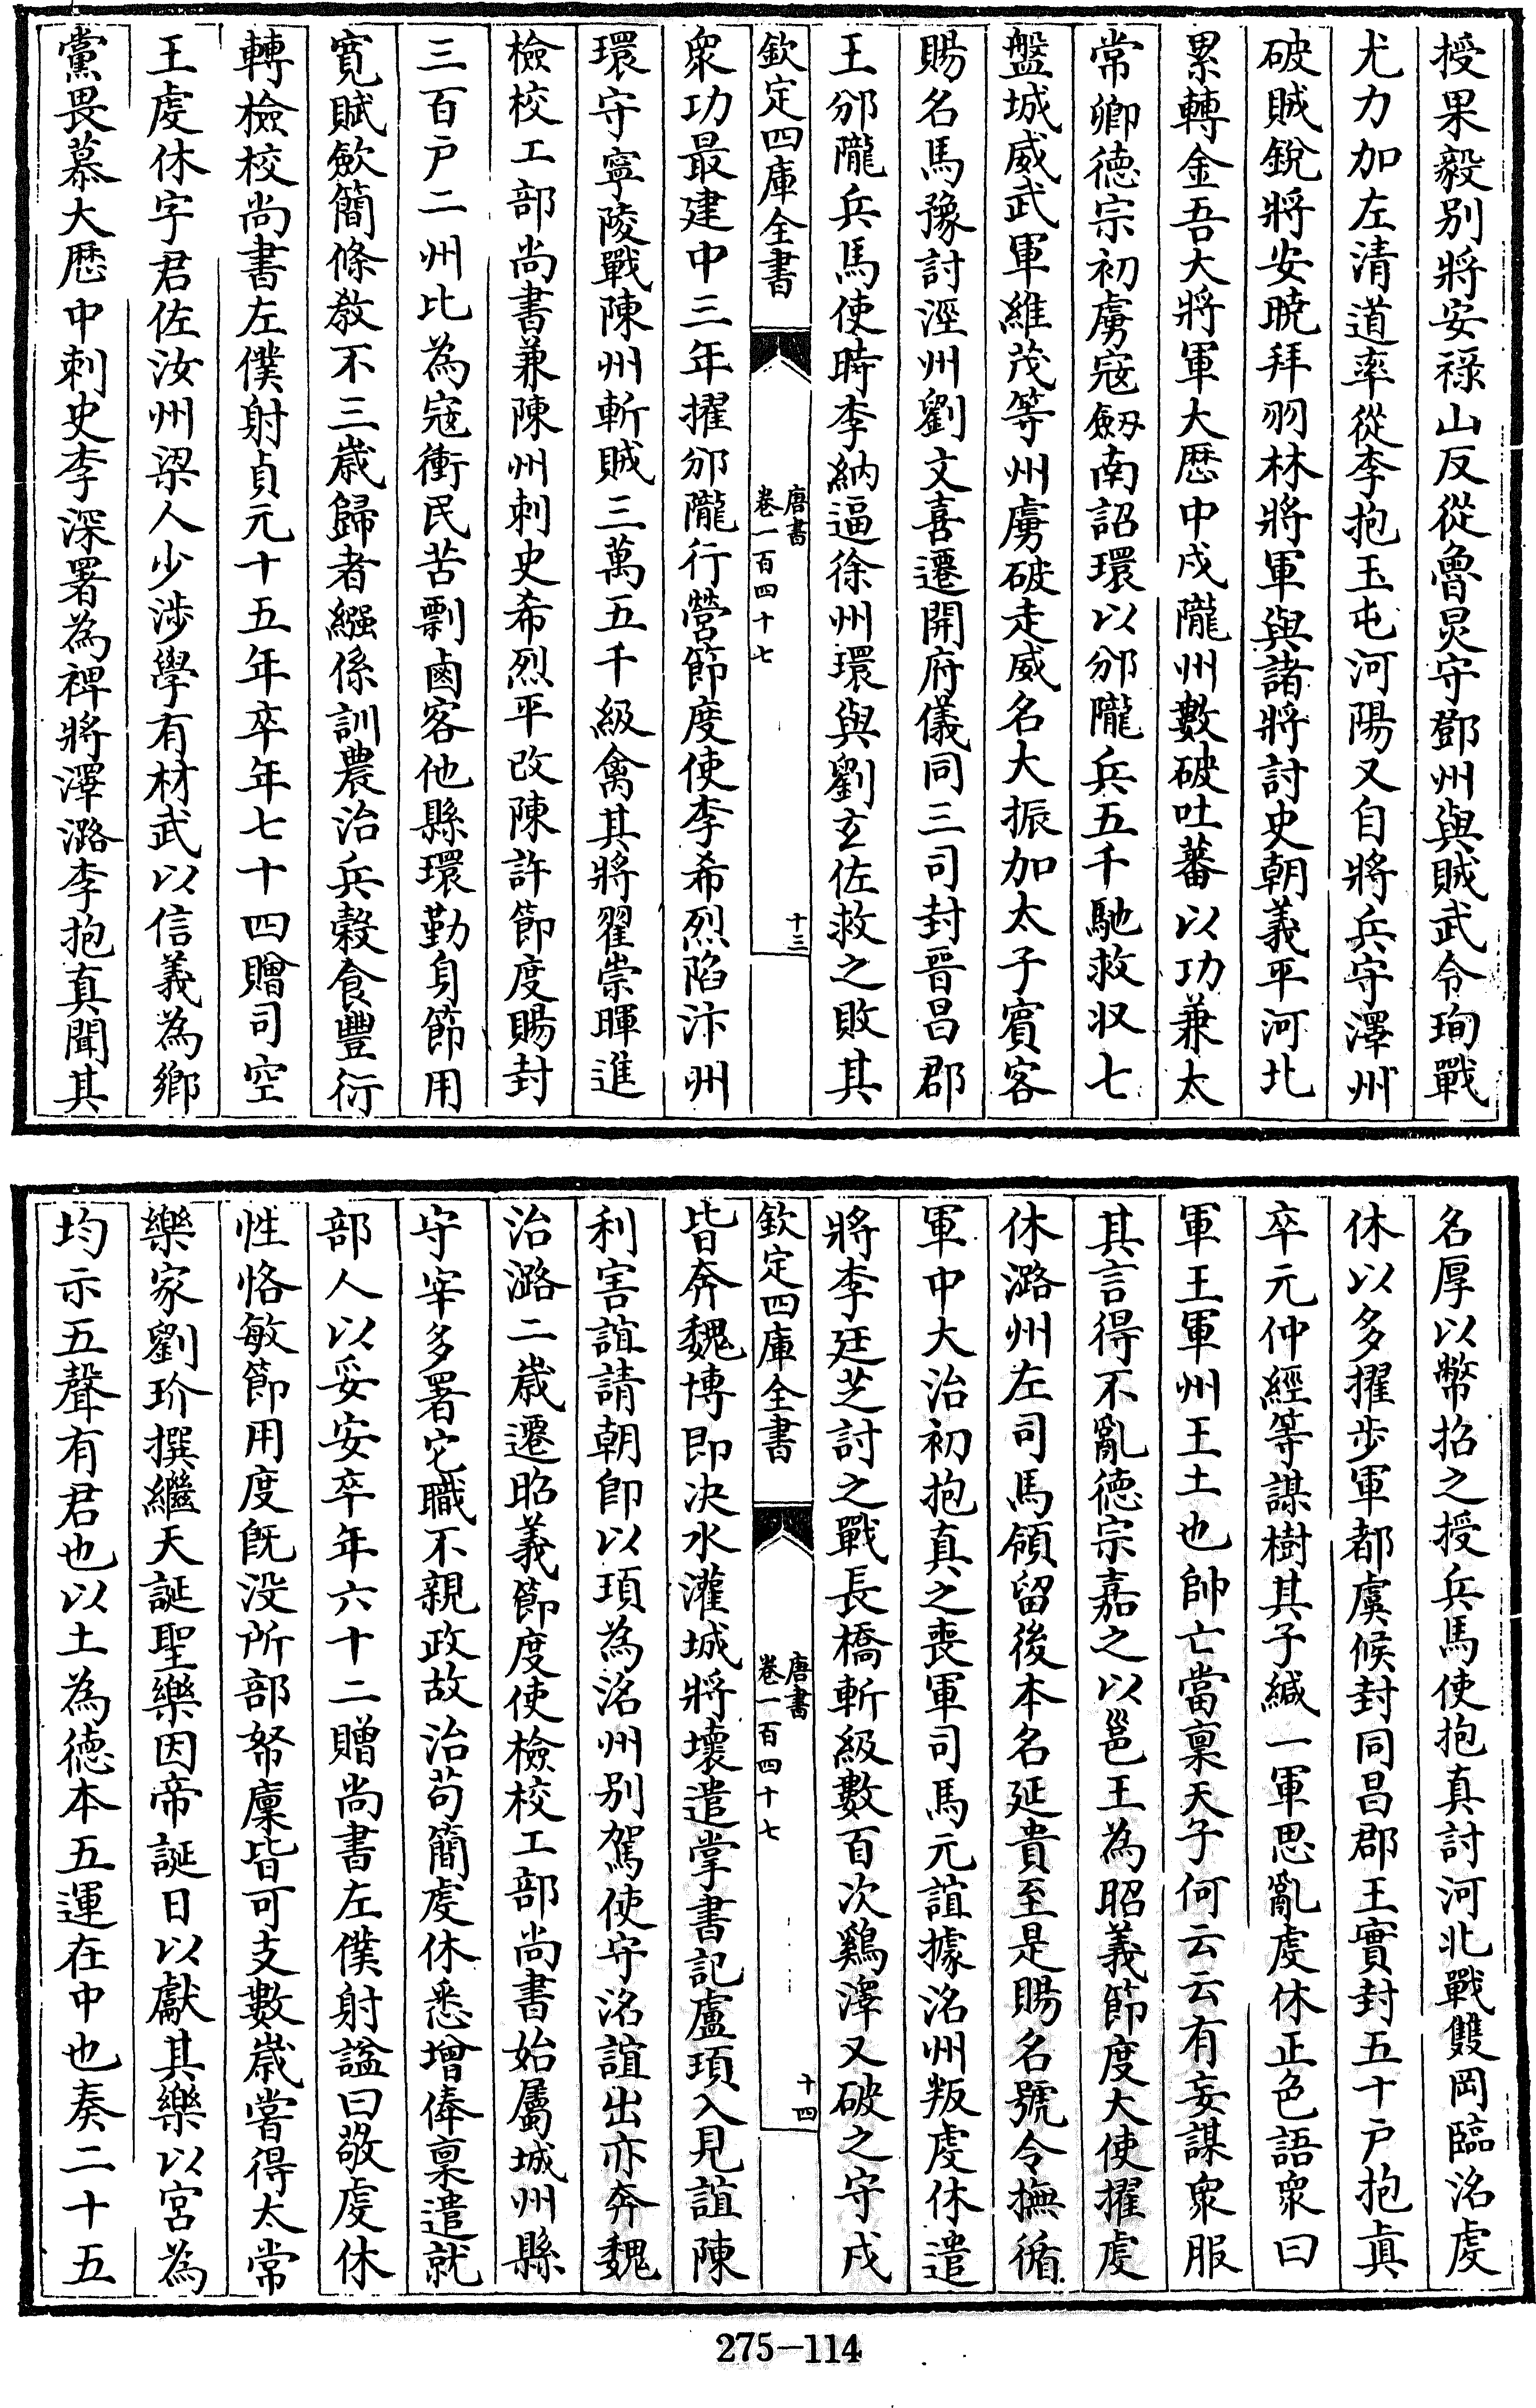 授果毅别將安禄山反從魯炅守鄧州與賊武令珣戰
尤力加左清道率從李抱玉屯河陽又自將兵守澤州
破賊銳將安曉拜羽林將軍與諸將討史朝義平河北
累轉金吾大將軍大厯中戍隴州數破吐蕃以功兼太
常卿徳宗初虜寇劔南詔環以邠隴兵五千馳救収七
盤城威武軍維茂等州虜破走威名大振加太子賓客
賜名馬豫討涇州劉文喜遷開府儀同三司封晉昌郡
王邠隴兵馬使時李納逼徐州環與劉玄佐救之敗其
欽定四庫全書
唐書
卷一百四十七
十三
衆功最建中三年擢邠隴行營節度使李希烈陷汴州
環守寧陵戰陳州斬賊三萬五千級禽其將翟崇暉進
檢校工部尚書兼陳州刺史希烈平改陳許節度賜封
三百戸二州比為寇衝民苦剽鹵客他縣環勤身節用
寛賦斂簡條教不三歳歸者繦係訓農治兵穀食豐衍
轉檢校尚書左僕射貞元十五年卒年七十四贈司空
王虔休字君佐汝州梁人少渉學有材武以信義為鄉
黨畏慕大厯中刺史李深署為禆將澤潞李抱真聞其
名厚以幣招之授兵馬使抱真討河北戰雙岡臨洺虔
休以多擢步軍都虞候封同昌郡王實封五十戸抱真
卒元仲經等謀樹其子緘一軍思亂虔休正色語衆曰
軍王軍州王土也帥亡當稟天子何云云有妄謀衆服
其言得不亂德宗嘉之以邕王為昭義節度大使擢虔
休潞州左司馬領留後本名延貴至是賜名號令撫循
軍中大治初抱真之喪軍司馬元誼據洺州叛虔休遣
將李廷芝討之戰長橋斬級數百次鷄澤又破之守戍
欽定四庫全書
唐書
卷一百四十七
十四
皆奔魏博即決水灌城將壊遣掌書記盧頊入見誼陳
利害誼請朝即以頊為洺州別駕使守洺誼出亦奔魏
治潞二歳遷昭義節度使檢校工部尚書始屬城州縣
守宰多署它職不親政故治苟簡虔休悉增俸稟遣就
部人以妥安卒年六十二贈尚書左僕射諡曰敬虔休
性恪敏節用度旣没所部帑廩皆可支數歳嘗得太常
樂家劉玠撰繼天誕聖樂因帝誕日以獻其樂以宮為
均示五聲有君也以土為徳本五運在中也奏二十五
275-114